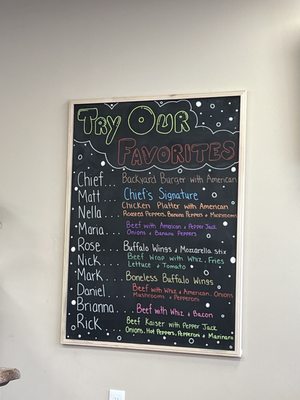 Try Our
Favorites
Chief... Backyard Burger with American
Matt.... Chief's Signature
Nella.... Chicken Platter with American
Roasted Peppers, Banana Peppers & Mushrooms
Maria.... Beef with American & Pepper Jack
Onions & Banana Peppers
Rose.... Buffalo Wings & Mozzarella Stix
Nick.... Beef Wrap with Whiz, Fries
Lettuce & Tomato
Mark.... Boneless Buffalo Wings
Daniel.... Beef with Whiz & American, Onions
Mushrooms & Pepperoni
Drianna.... Beef with Whiz & Bacon
Rick.... Beef Kaiser with Pepper Jack
Onions, Hot Peppers, Pepperoni & Marinara